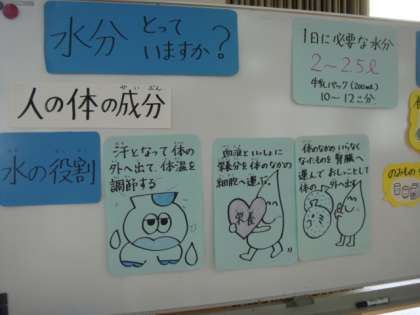 水分 とって
いますか?
1日に必要な水分
2〜2.5ℓ
牛乳パック(200mL)
10〜12こ分
人の体の成分
せいぶん
水の役割
汗となって体の
外へ出て、体温を
調節する
血液といっしょに
栄養分を体のなかの
細胞へ運ぶ。
栄養
体のなかのいらなく
なったものを腎臓へ
運んでおしっことして
体の外へ出す
ゴミ
のみもの